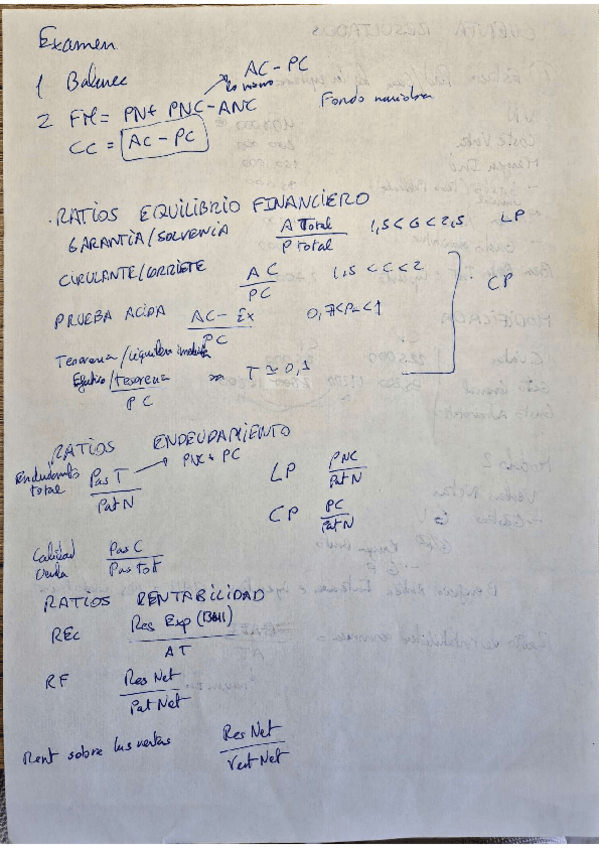 Examen
1 Balance
AC - PC
lo mismo
2 FM = PN + PNC - ANC
Fondo maniobra
CC = AC - PC
. RATIOS EQUILIBRIO FINANCIERO
GARANTIA/SOLVENCIA A Total / P total 1,5 < G < 2,5 LP
CIRULANTE/CORRIETE AC / PC 1,5 < C < 2
CP
PRUEBA ACIDA AC - Ex / PC 0,7 < PA < 1
Tesoreria/liquidez inmedia
Efectivo/tesoreria / PC T ≃ 0,1
RATIOS ENDEUDAMIENTO
PNC + PC
Endeudamto total Pas T / Pat N
LP PNC / Pat N
CP PC / Pat N
Calidad deuda Pas C / Pas Tot
RATIOS RENTABILIDAD
REC Res Exp (BAII) / AT
RF Res Net / Pat Net
Rent sobre las ventas Res Net / Vent Net